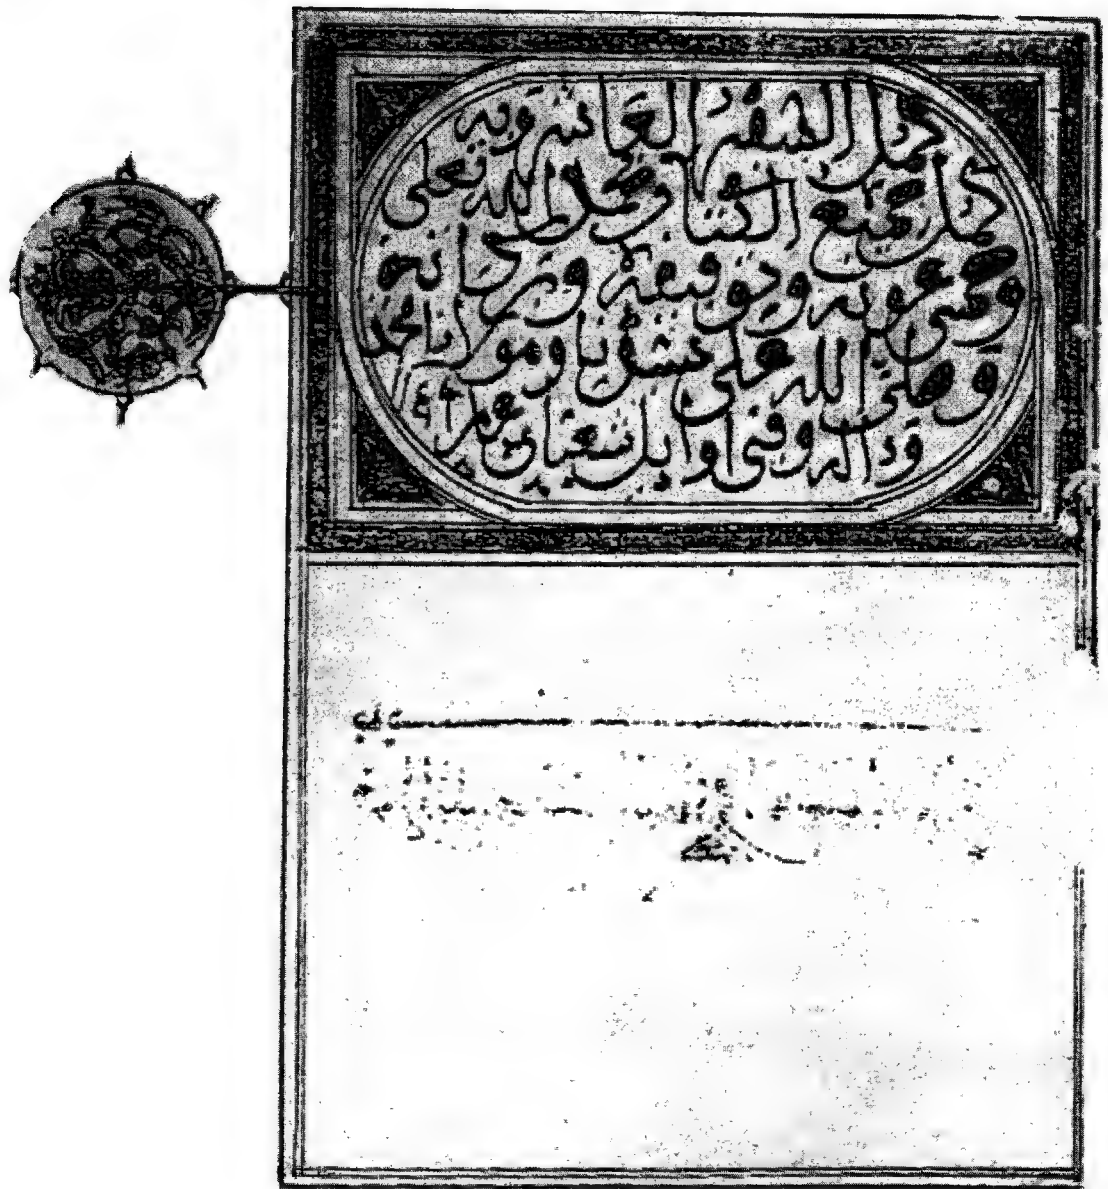 كمل السفر العاشر وبه
كمل جميع الكتاب والحمد لله تعلى
وحسن عونه وتوفيقه
وصلى الله على سيدنا ومولانا محمد
وءاله وفى اوايل شعبان